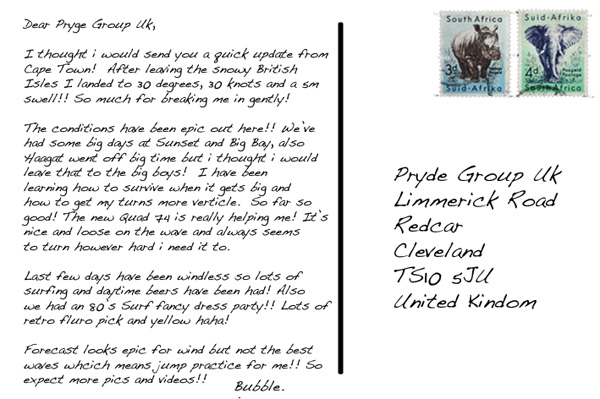 Dear Pryge Group Uk,
I thought i would send you a quick update from
Cape Town! After leaving the snowy British
Isles I landed to 30 degrees, 30 knots and a 5m
swell!! So much for breaking me in gently!
The conditions have been epic out here!! We've
had some big days at Sunset and Big Bay, also
Haagat went off big time but i thought i would
leave that to the big boys! I have been
learning how to survive when it gets big and
how to get my turns more verticle. So far so
good! The new Quad 74 is really helping me! It's
nice and loose on the wave and always seems
to turn however hard i need it to.
Last few days have been windless so lots of
surfing and daytime beers have been had! Also
we had an 80's Surf fancy dress party!! Lots of
retro fluro pick and yellow haha!
Forecast looks epic for wind but not the best
waves whcich means jump practice for me!! So
expect more pics and videos!!
Bubble.
South Africa
3d
Suid-Afrika
Suid-Afrika
4d
Posgeld
Postage
South Africa
Pryde Group Uk
Limmerick Road
Redcar
Cleveland
TS10 5JU
United Kindom